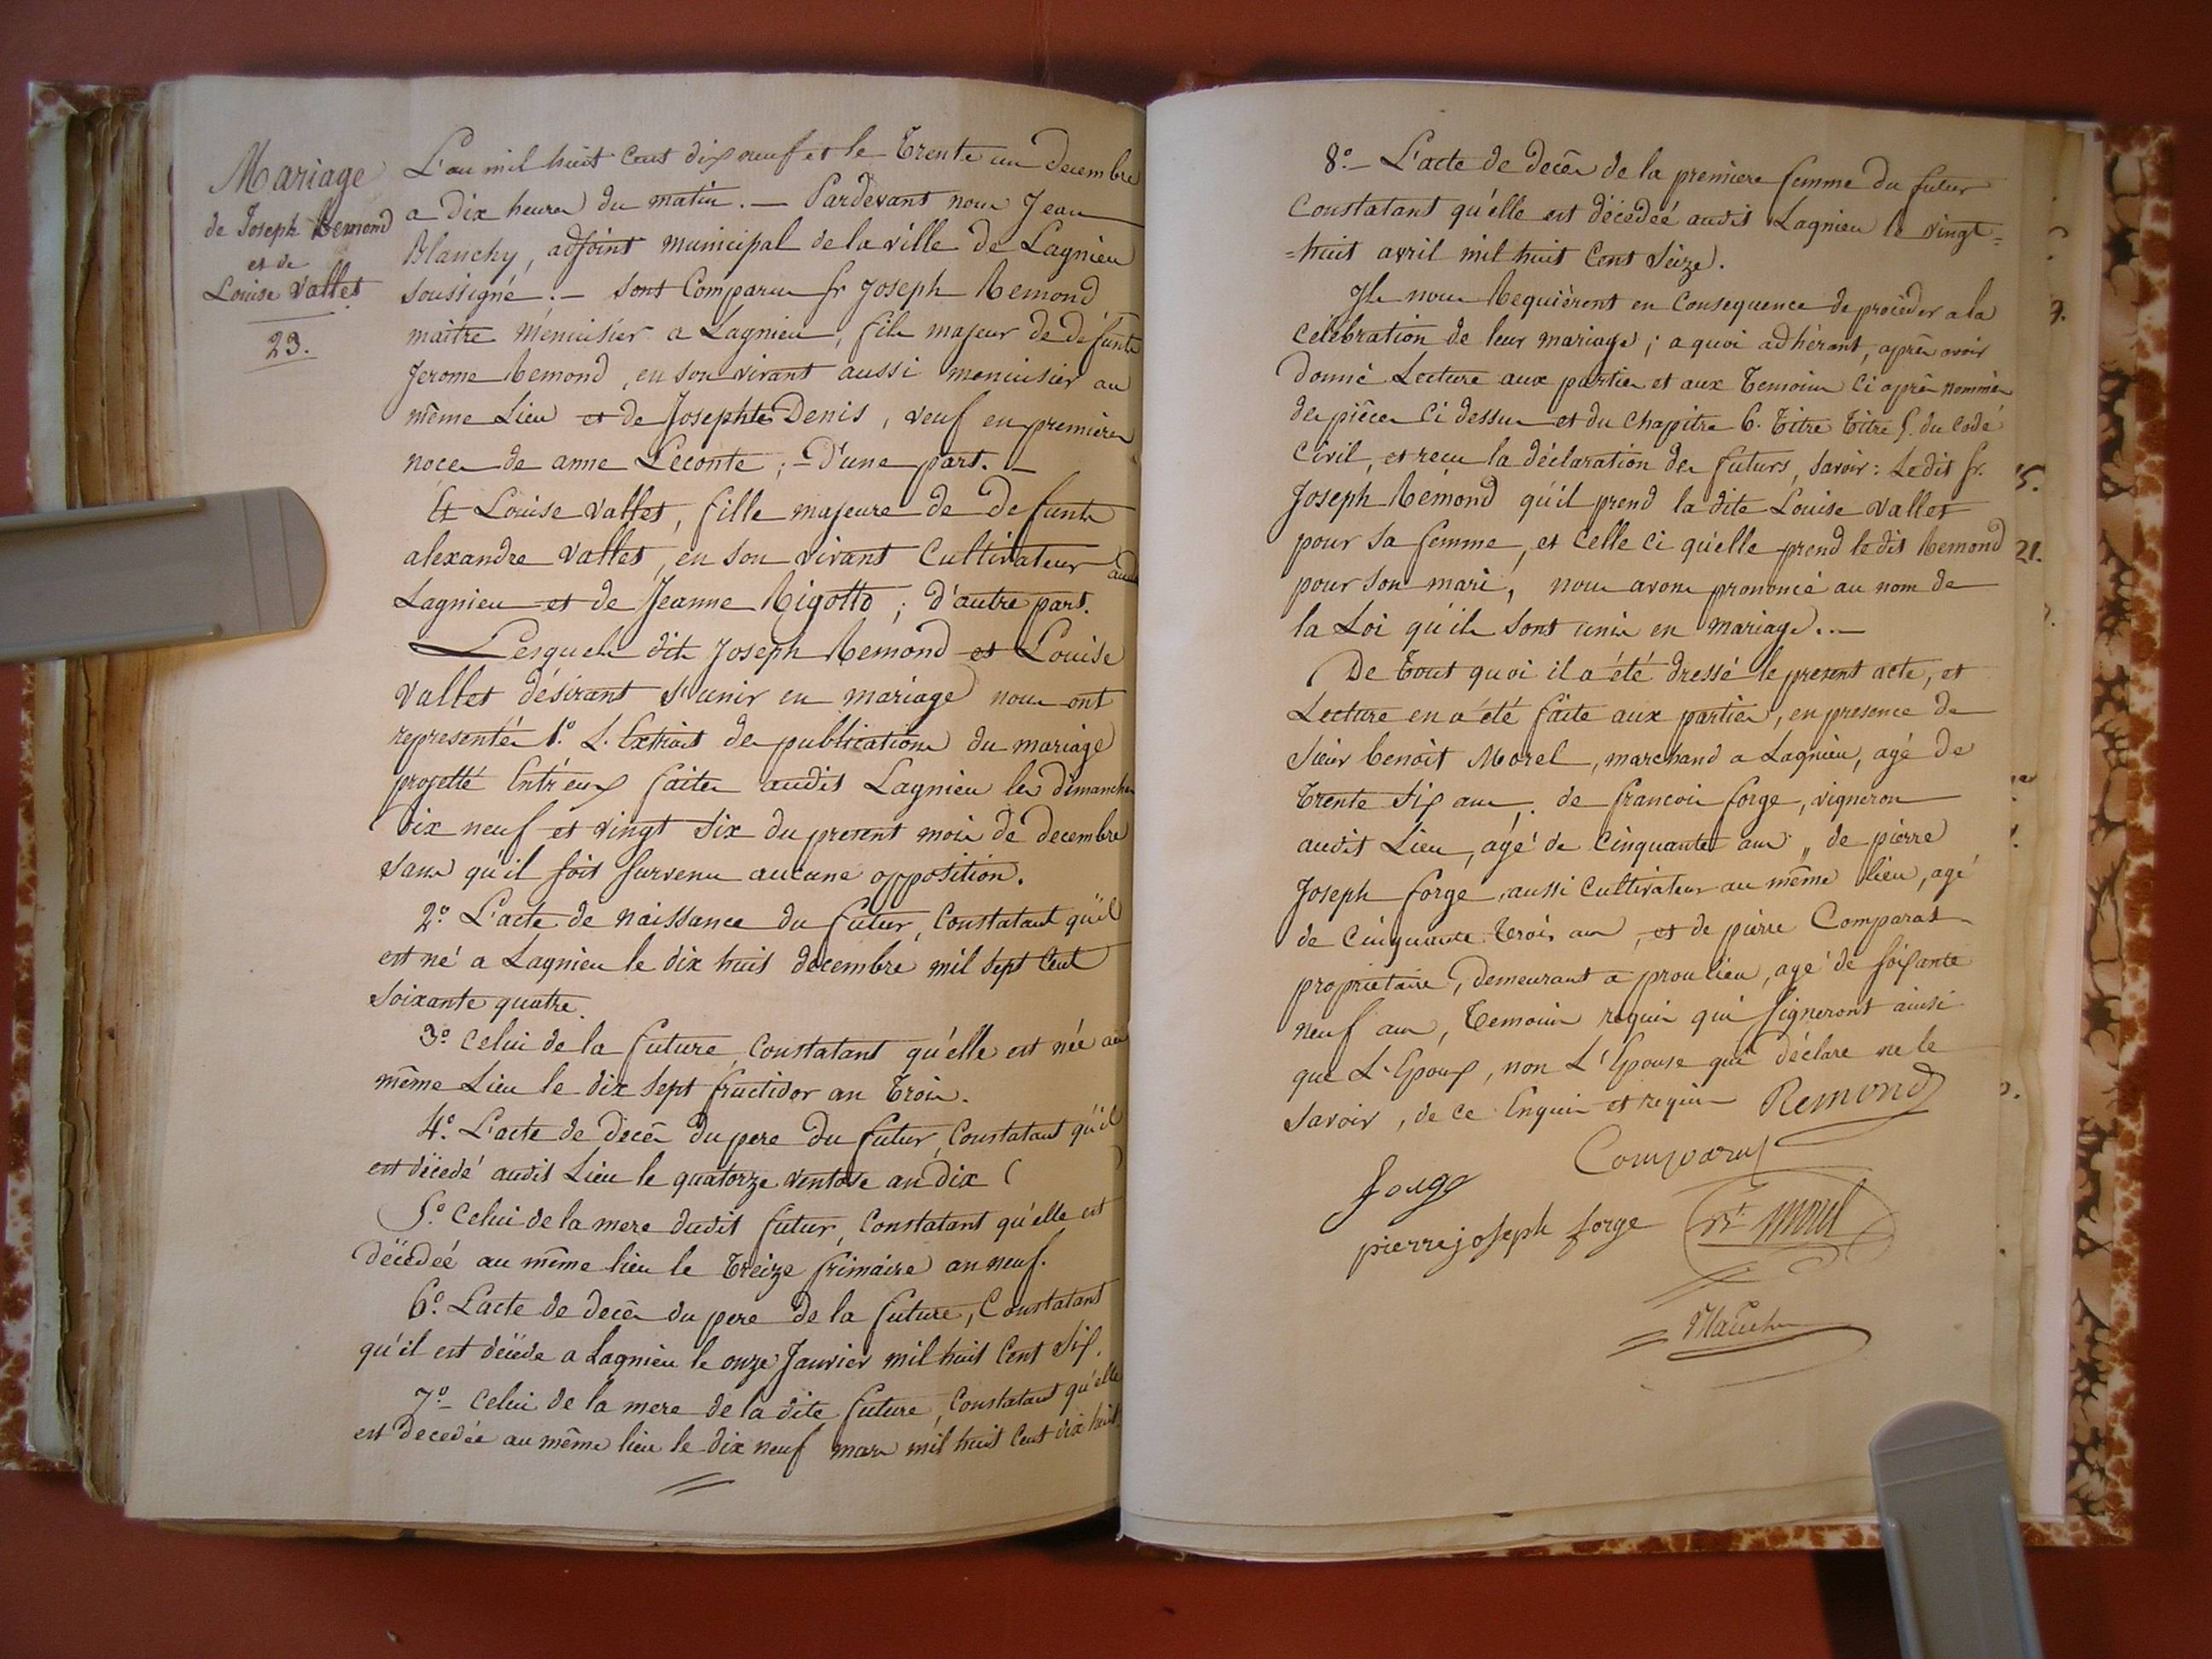 Mariage
de Joseph Remond
et de
Louise Vallet
23.
L'an mil huit cent dix neuf et le Trente un Decembre
a dix heures du matin. — Pardevant nous Jean
Blanchy, adjoint municipal de la ville de Lagnieu
soussigné. — Sont Comparus sr Joseph Remond
maître menuisier a Lagnieu, fils majeur de défunts
Jerome Remond, en son vivant aussi menuisier au
même Lieu et de Josephte Denis, veuf en premieres
noces de anne Leconte; — D'une part. —
Et Louise Vallet, fille majeure de defunts
alexandre Vallet, en son vivant Cultivateur audit
Lagnieu et de Jeanne Rigotto; d'autre part.
Lesquels dits Joseph Remond et Louise
Vallet désirant s'unir en mariage nous ont
representés 1.° L'Extrait des publications du mariage
projetté Entr'eux faites audit Lagnieu les dimanches
Dix neuf et vingt six du present mois de decembre
sans qu'il soit survenu aucune opposition.
2.° L'acte de naissance du futur, Constatant qu'il
est né a Lagnieu le dix huit decembre mil sept Cent
soixante quatre.
3.° Celui de la future, Constatant qu'elle est née au
même Lieu le dix sept fructidor an Trois.
4.° L'acte de decès du pere du futur, Constatant qu'il
est décedé audit Lieu le quatorze ventose an dix
5.° Celui de la mere dudit futur, Constatant qu'elle est
décedée au même lieu le Treize frimaire an neuf.
6.° L'acte de decès du pere de la future, Constatant
qu'il est décede a Lagnieu le onze Janvier mil huit Cent Six.
7.° — Celui de la mere de la dite future, Constatant qu'elle
est decedée au même lieu le dix neuf mars mil huit Cent dix huit.
8.° — L'acte de decès de la premiere femme du futur
Constatant qu'elle est décedeé audit Lagnieu le vingt=
=huit avril mil huit Cent Seize.
Ils nous Requièrent en Consequence de proceder a la
Celebration de leur mariage; a quoi adhérant, après avoir
donné Lecture aux parties et aux Temoins Ci après nommés
des pièces Ci dessus et du Chapitre 6. Titre Titre 5. du Code
Civil, et recu la déclaration des futurs, savoir: Ledit sr.
Joseph Remond qu'il prend la dite Louise Vallet
pour sa femme, et Celle Ci qu'elle prend le dit Remond
pour son mari, nous avons prononcé au nom de
la Loi qu'ils sont unis en mariage. —
De Tout quoi il a été dressé le present acte, et
Lecture en a été faite aux parties, en presence de
Sieur Benoit Morel, marchand a Lagnieu, agé de
Trente Six ans, de francois forge, vigneron
audit Lieu, agé de Cinquante ans, de pierre
Joseph forge, aussi Cultivateur au même lieu, agé
de Cinquante Trois ans, et de pierre Comparat
propriétaire, demeurant a proulieu, agé de soixante
neuf ans, Temoins requis qui signeront ainsi
que L'Epoux, non L'Epouse qui déclare ne le
Savoir, de Ce Enquis et requis Remond
forge
pierre joseph forge
Bt morel
Blanchy
5.
21.